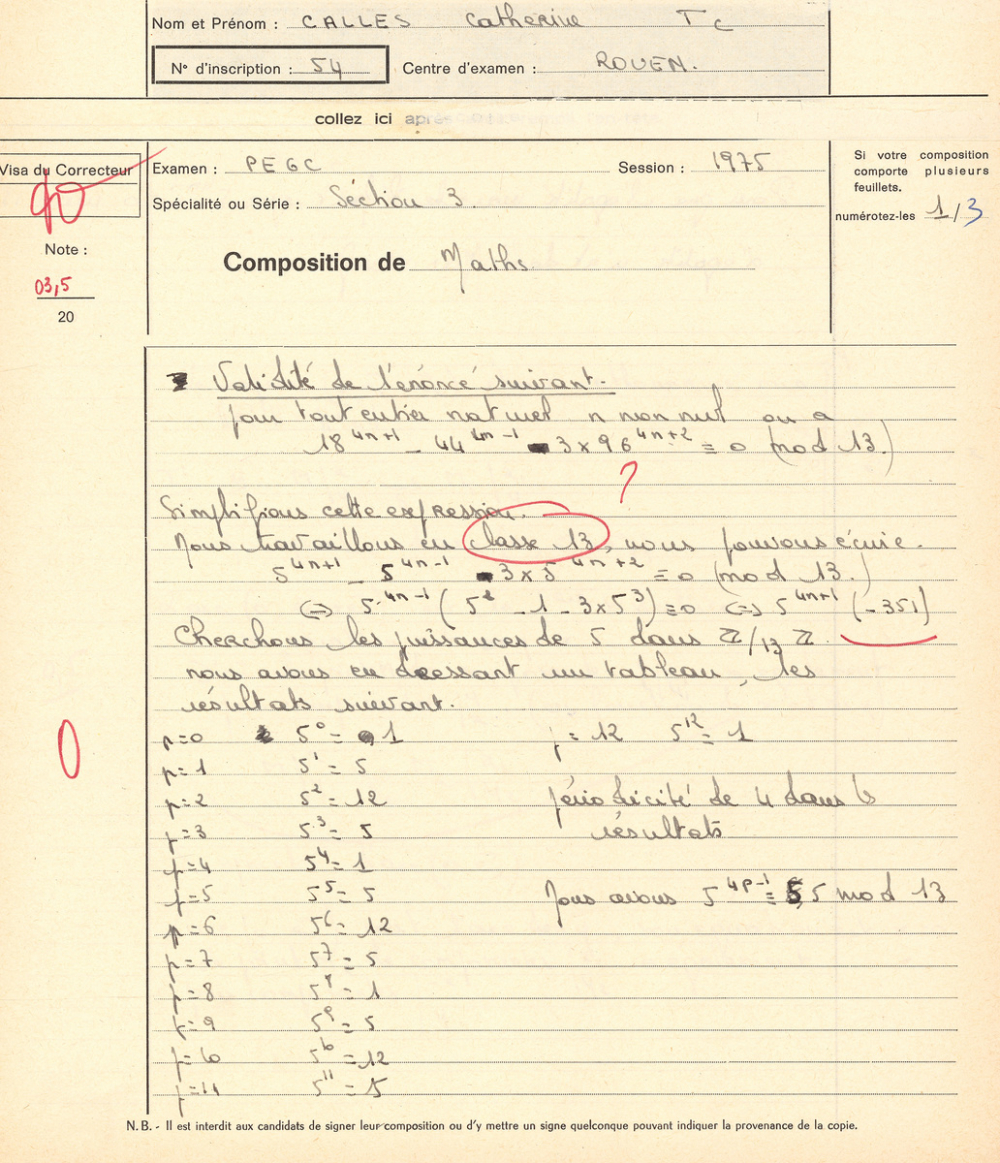 Nom et Prénom : CALLES Catherine Tc
N° d'inscription : 54 Centre d'examen : ROUEN.
collez ici après
Visa du Correcteur
Examen : PEGC Session : 1975
Spécialité ou Série : Séction 3.
Si votre composition
comporte plusieurs
feuillets.
numérotez-les 1/3
Note :
03,5
20
Composition de Maths.
Validité de l'énoncé suivant.
pour tout entier naturel n non nul on a
18^4n+1 - 44^4n-1 - 3 x 96^4n+2 ≡ 0 (mod 13.)
?
Simplifions cette expression.
Nous travaillons en classe 13, nous pouvons écrire.
5^4n+1 - 5^4n-1 - 3 x 5^4n+2 ≡ 0 (mod 13.)
<=> 5^4n-1 ( 5^2 - 1 - 3 x 5^3) ≡ 0 <=> 5^4n+1 (- 351)
Cherchons les puissances de 5 dans ℤ/13 ℤ.
nous avons en dressant un tableau, les
résultats suivant.
0
p=0 5^0 = 1 p = 12 5^12 = 1
p=1 5^1 = 5
p=2 5^2 = 12 périodicité de 4 dans les
p=3 5^3 = 5 résultats
p=4 5^4 = 1
p=5 5^5 = 5 Nous avons 5^4p-1 ≡ 5 mod 13
p=6 5^6 = 12
p=7 5^7 = 5
p=8 5^8 = 1
p=9 5^9 = 5
p=10 5^10 = 12
p=11 5^11 = 5
N. B. - Il est interdit aux candidats de signer leur composition ou d'y mettre un signe quelconque pouvant indiquer la provenance de la copie.